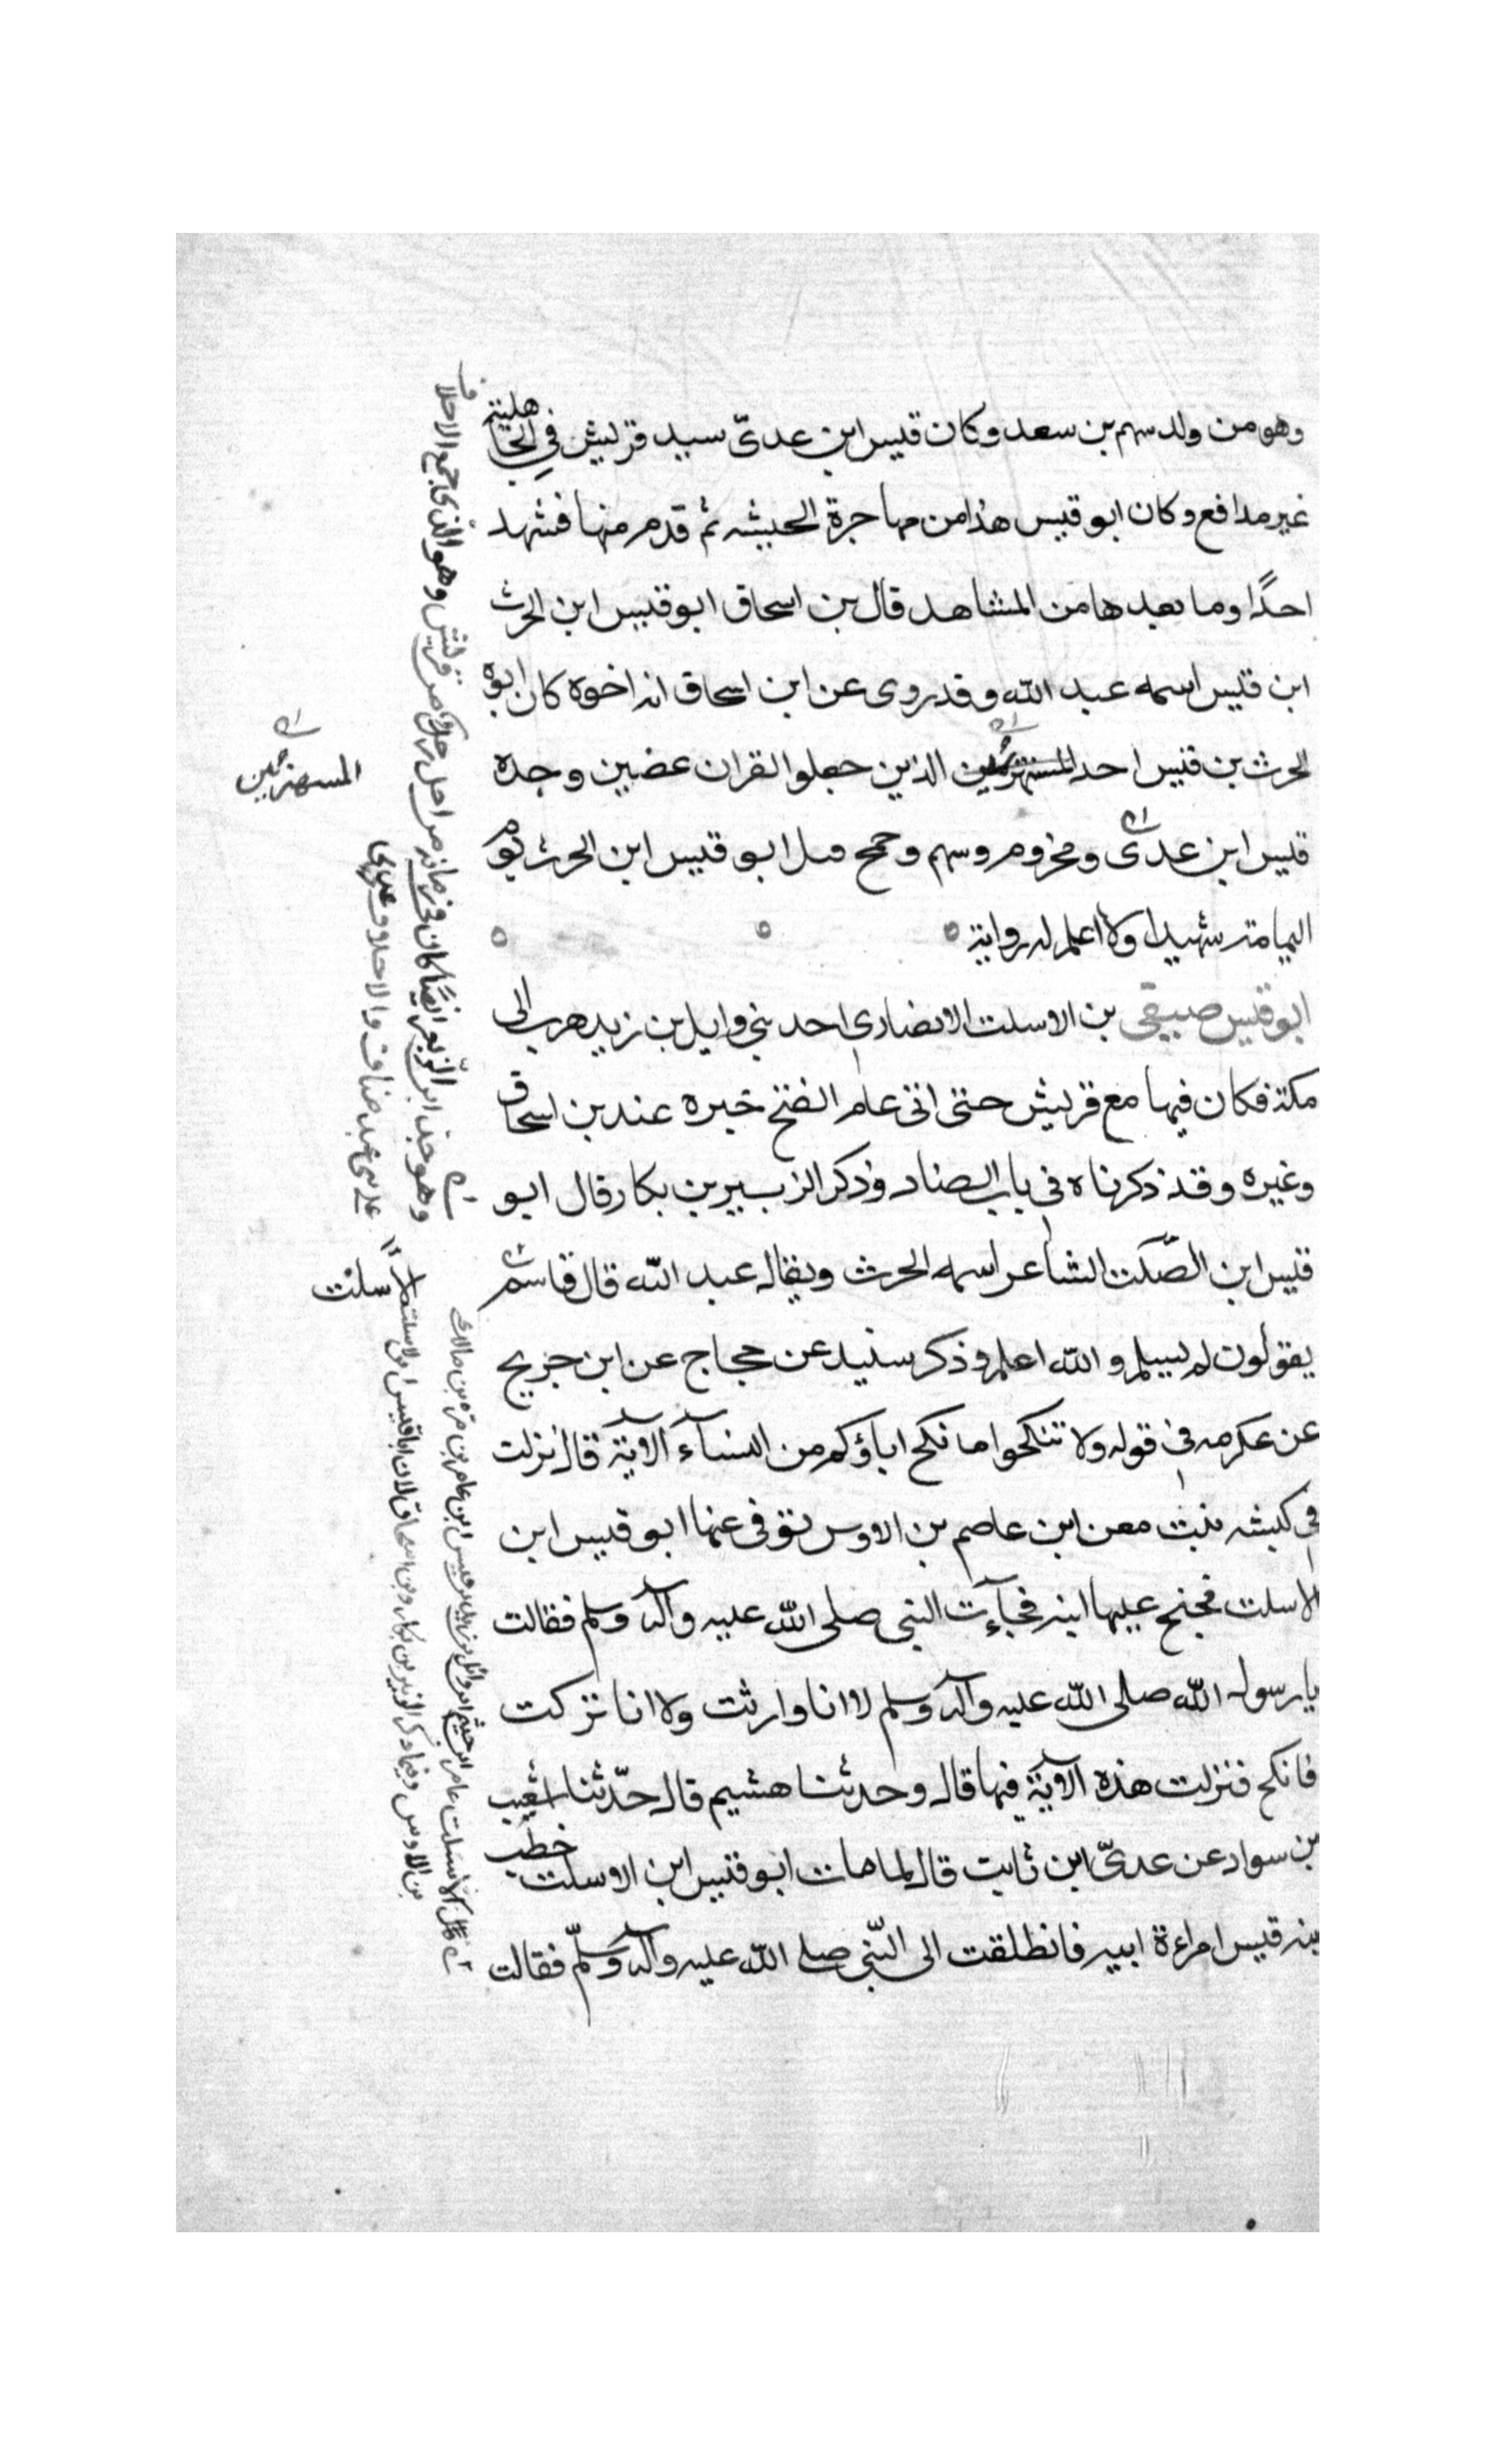 وهو من ولد سهم بن سعد وكان قيس ابن عدىّ سيد قريش في الجاهلية
غير مدافع وكان ابو قيس هذا من مهاجرة الحبشه ثم قدم منها فشهد
احدًا وما بعدها من المشاهد قال بن اسحاق ابو قيس ابن الحرث
ابن قيس اسمه عبد الله وقد روى عن ابن اسحاق انه اخوه كان ابوه
الحرث بن قيس احد المستهزئين الذين جعلو القران عضين وجده
المستهزئين
قيس ابن عدى ومخزوم وسهم وجمح قتل ابو قيس ابن الحرث يوم
اليمامة شهيدا ولا اعلم له رواية
ابو قيس صيفي بن الاسلت الانصارى احد بني وايل بن زيد هرب الى
مكة فكان فيها مع قريش حتى اتى عام الفتح خبره عند بن اسحاق
وغيره وقد ذكرناه في باب الصاد وذكر الزبير بن بكار قال ابو
قيس ابن الصّلت الشاعر اسمه الحرث ويقال عبد الله قال قاسم
سلت
يقولون لم يسلم والله اعلم وذكر سنيد عن حجاج عن ابن جريج
عن عكرمه في قوله ولا تنكحوا ما نكح اباؤكم من النسآء الآية قال نزلت
في كبشه بنت معن ابن عاصم بن الاوس توفى عنها ابو قيس ابن
الاسلت فجنح عليها ابنه فجآءت النبى صلى الله عليه وآله وسلم فقالت
يا رسول الله صلى الله عليه وآله وسلم لا انا وارثت ولا انا تركت
فانكح فنزلت هذه الآية فيها قال وحدثنا هشيم قال حدّثنا اشعب
بن سواد عن عدىّ ابن ثابت قال لما مات ابو قيس ابن الاسلت خطب
بنه قيس امراءة ابيه فانطلقت الى النّبى صلى الله عليه وآله وسلّم فقالت
وهو جد ابن الزّبعرى ايضًا كان في زمانه من اجل رجل من قريش وهو الذى جمع الاحلاف
على بنى عبد مناف والاحلاف عدى